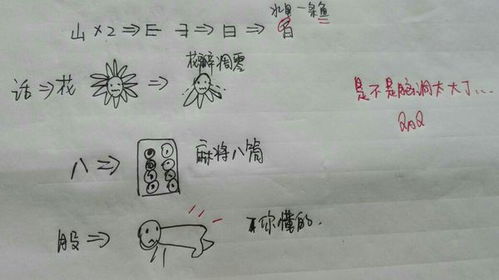 水里一条鱼
山×2⇒E ヨ⇒日⇒
话⇒花 ⇒ 花瓣凋零
是不是脑洞太大了...
QAQ
八⇒ 麻将八筒
股⇒ 你懂的.